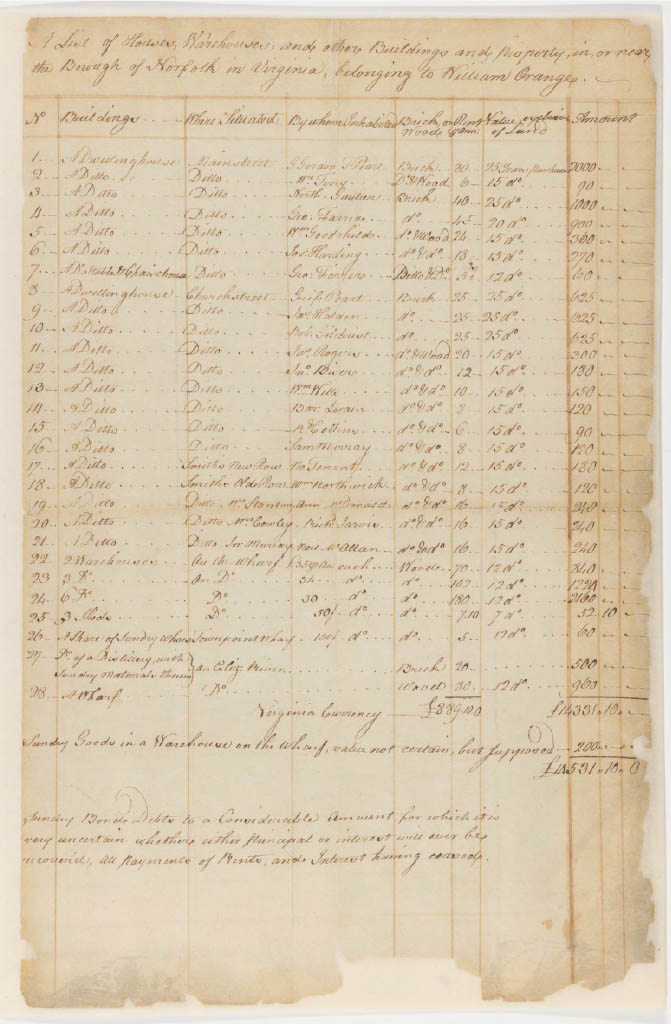 A List of Houses, Warehouses, and other Buildings and Property, in, or near
the Borough of Norfolk in Virginia, belonging to William Orange.
No Buildings Where Situated By whom Inhabited Brick, or Wood Rent p Ann. Value, exclusive of Land Amount
1 A Dwelling house Main street Gordon Brick 80 25 Years purchase 2000
2 A Ditto Ditto Wm Terry Do & Wood 6 15 do 90
3 A Ditto Ditto North Brick 40 25 do 1000
4 A Ditto Ditto Geo. Farrer do 45 20 do 900
5 A Ditto Ditto Wm Goodchild do & Wood 24 15 do 360
6 A Ditto Ditto Jas. Harding do & do 18 15 do 270
7 A Do Stable & Chair house Ditto Geo. Farrer Ditto & Do 5 12 do 60
8 A Dwelling house Church street Peart Brick 25 25 do 625
9 A Ditto Ditto do 25 25 do 625
10 A Ditto Ditto Rob. Gilchrist do 25 25 do 625
11 A Ditto Ditto Jas. Rogers do & Wood 20 15 do 300
12 A Ditto Ditto Jno. do & do 12 15 do 180
13 A Ditto Ditto Wm Wills do & do 10 15 do 150
14 A Ditto Ditto do & do 8 15 do 120
15 A Ditto Ditto do & do 6 15 do 90
16 A Ditto Ditto Sam Murray do & do 8 15 do 120
17 A Ditto Smiths New Row No Tenant do & do 12 15 do 180
18 A Ditto Smiths Old Row Wm Northwick do & do 8 15 do 120
19 A Ditto Ditto Mrs Stanton Ann McDonald do & do 16 15 do 240
20 A Ditto Ditto Mrs Cowley Rich Jarvis do & do 16 15 do 240
21 A Ditto Ditto Jas Murray McAllan do & do 16 15 do 240
22 2 Warehouses On the Wharf £35 p Ann each Wood 70 12 do 840
23 3 Do On Do 34 do do 102 12 do 1220
24 6 Do Do 30 do do 180 12 do 2160
25 3 Sheds Do 50/ do do 7.10 7 do 52 10
26 A Share of Sundry Whare Town point Wharf 100/ do do 5 12 do 60
27 Do of a Distillery, with Sundry Materials therein on Eliz. River Brick 20 500
28 A Wharf Do Wood 80 12 do 960
Virginia Currency £889.10.0 £14331.10
Sundry Goods in a Warehouse on the Wharf, value not certain, but supposed 200
£14531.10.0
Sundry Bonds Debts to a Considerable Amount for which it is
very uncertain whether either Principal or interest will ever be
recovered, all Payments of Rents, and Interest having ceased.